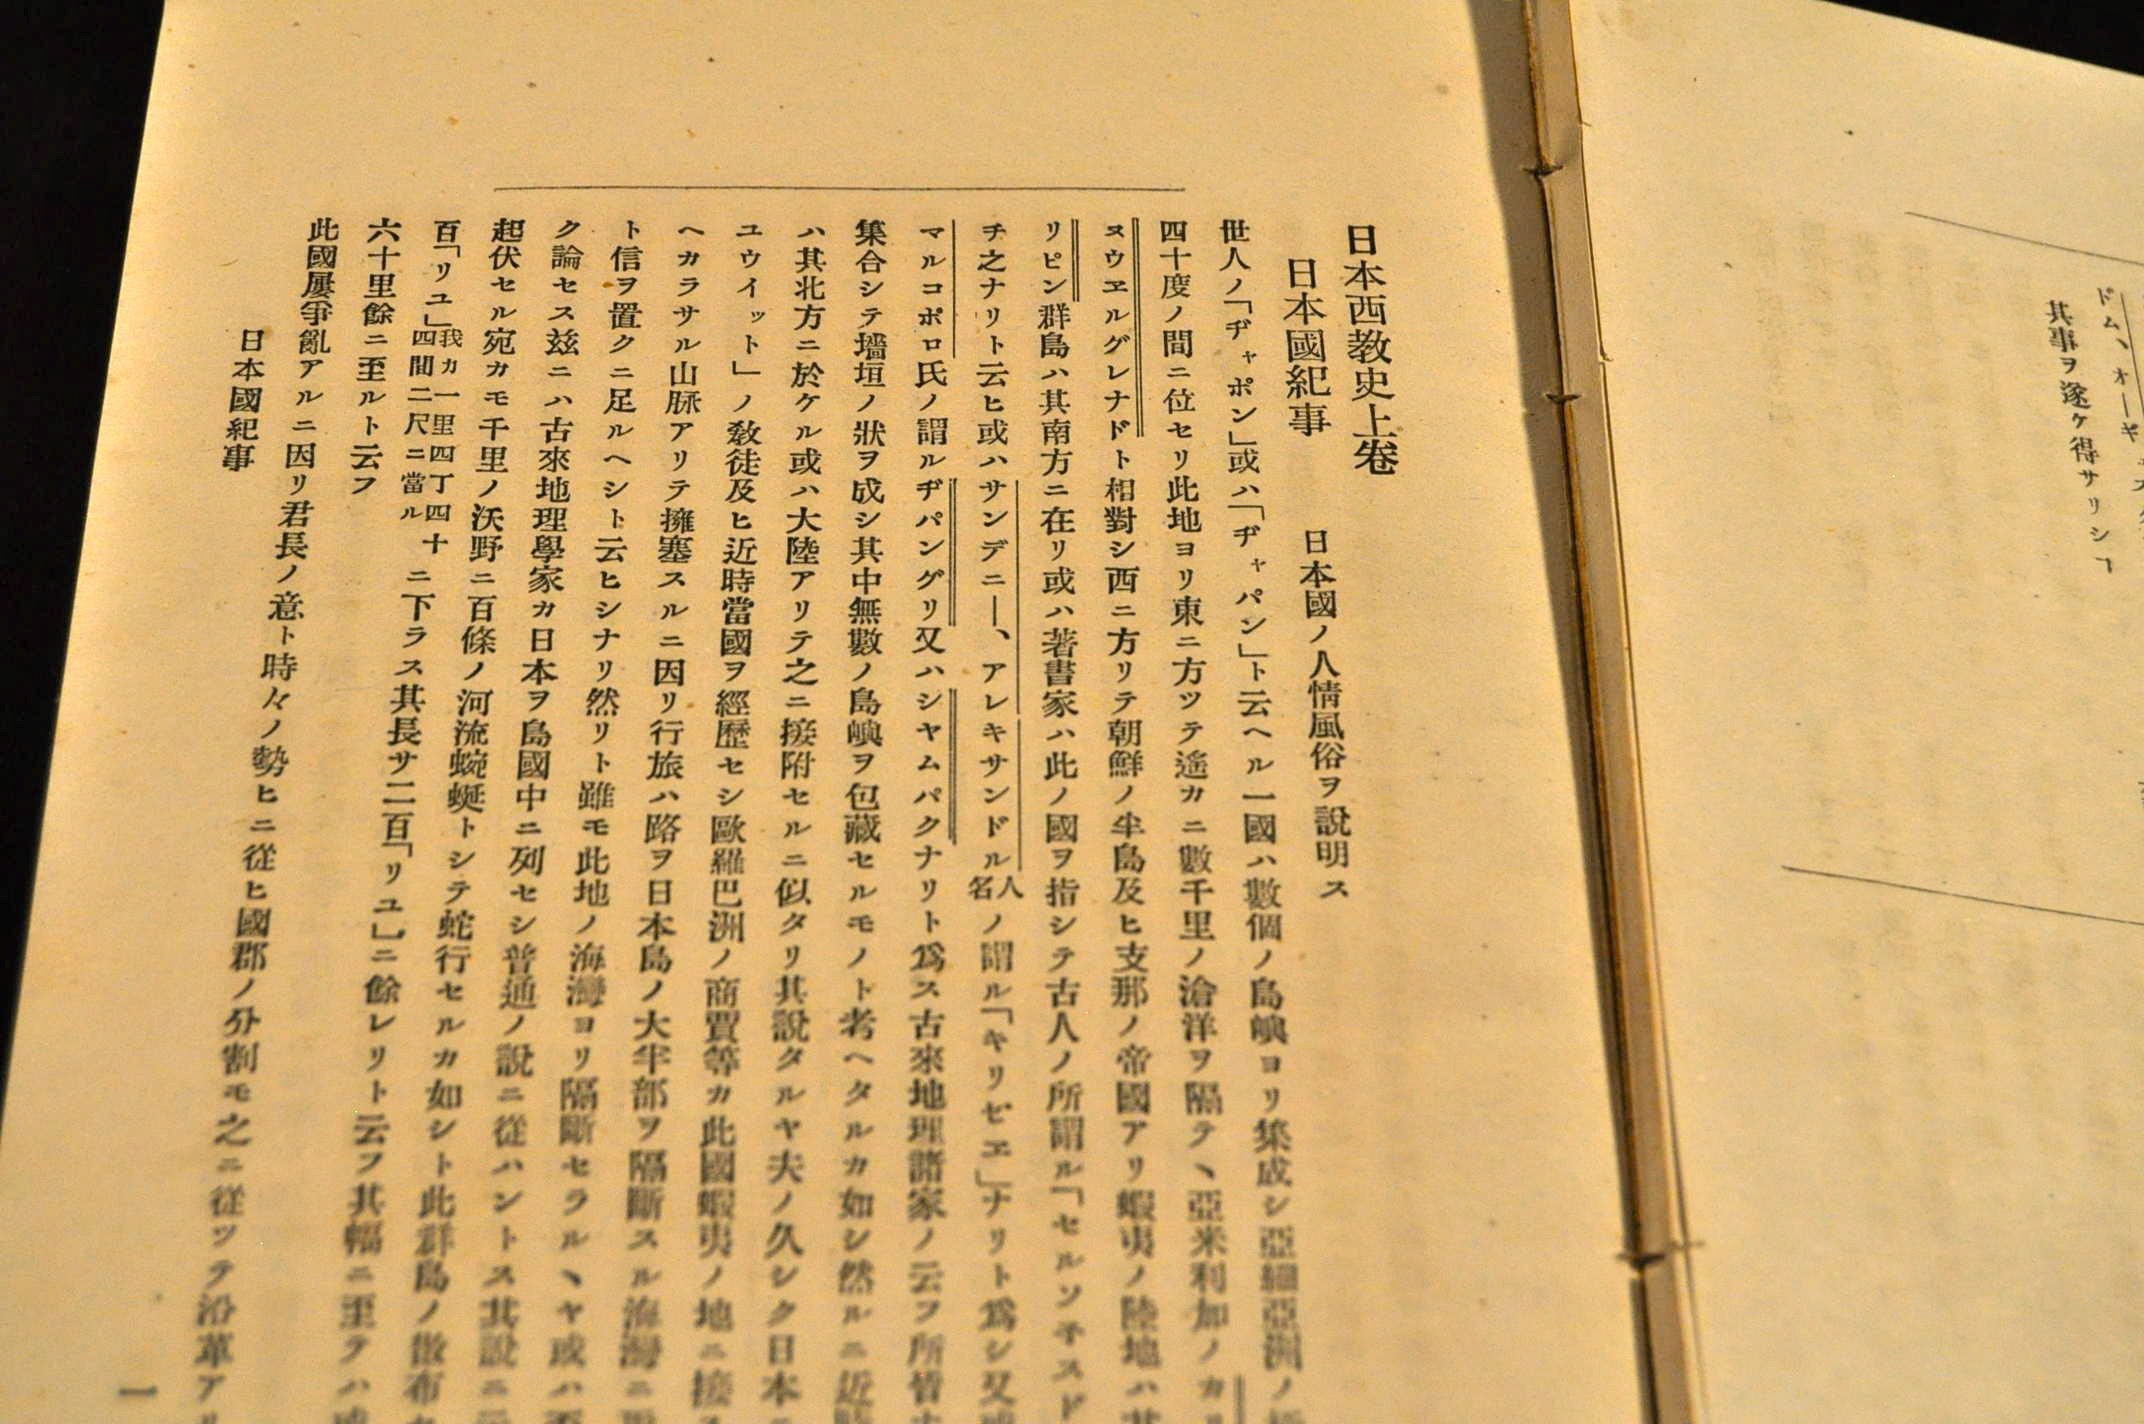 ドム、オーギ
其事ヲ遂ケ得サリシヿ
日本西教史上卷
日本國紀事
日本國ノ人情風俗ヲ說明ス
世人ノ「ヂャポン」或ハ「ヂャパン」ト云ヘル一國ハ數個ノ島嶼ヨリ集成シ亞細亞洲ノ
四十度ノ間ニ位セリ此地ヨリ東ニ方ツテ遙カニ數千里ノ滄洋ヲ隔テヽ亞米利加ノカリ
ヌウヱルグレナドト相對シ西ニ方リテ朝鮮ノ半島及ヒ支那ノ帝國アリ蝦夷ノ陸地ハ其
リピン群島ハ其南方ニ在リ或ハ著書家ハ此ノ國ヲ指シテ古人ノ所謂ル「セルソ子スド
チ之ナリト云ヒ或ハサンデニー、アレキサンドル人名ノ謂ル「キリセヱ」ナリト爲シ又或
マルコポロ氏ノ謂ルヂパングリ又ハシヤムパクナリト爲ス古來地理諸家ノ云フ所皆
集合シテ墻垣ノ狀ヲ成シ其中無數ノ島嶼ヲ包藏セルモノト考ヘタルカ如シ然ルニ近時
ハ其北方ニ於ケル或ハ大陸アリテ之ニ接附セルニ似タリ其說タルヤ夫ノ久シク日本ニ
ユウイット」ノ敎徒及ヒ近時當國ヲ經歷セシ歐羅巴洲ノ商賈等カ此國蝦夷ノ地ニ接
ヘカラサル山脉アリテ擁塞スルニ因リ行旅ハ路ヲ日本島ノ大半部ヲ隔斷スル海灣ニ
ト信ヲ置クニ足ルヘシト云ヒシナリ然リト雖モ此地ノ海灣ヨリ隔斷セラルヽヤ或ハ否
ク論セス玆ニハ古來地理學家カ日本ヲ島國中ニ列セシ普通ノ說ニ從ハントス其說ニ
起伏セル宛カモ千里ノ沃野ニ百條ノ河流蜿蜒トシテ蛇行セルカ如シト此群島ノ散布
百「リユ」我カ一里四丁四十四間二尺ニ當ルニ下ラス其長サ二百「リユ」ニ餘レリト云フ其幅ニ至テハ
六十里餘ニ至ルト云フ
此國屢爭亂アルニ因リ君長ノ意ト時々ノ勢ヒニ從ヒ國郡ノ分割モ之ニ從ツテ沿革ア
日本國紀事
一